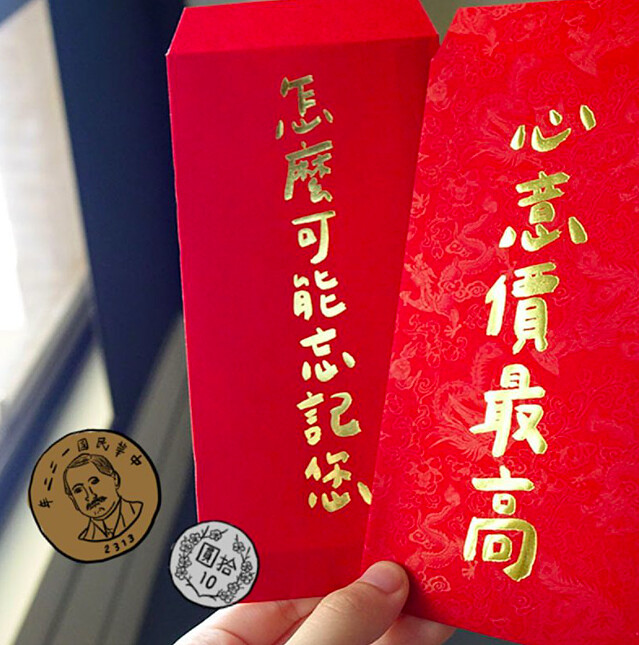 怎麼可能忘記您
心意價最高
中華民國一二二年
2313
拾圓
10